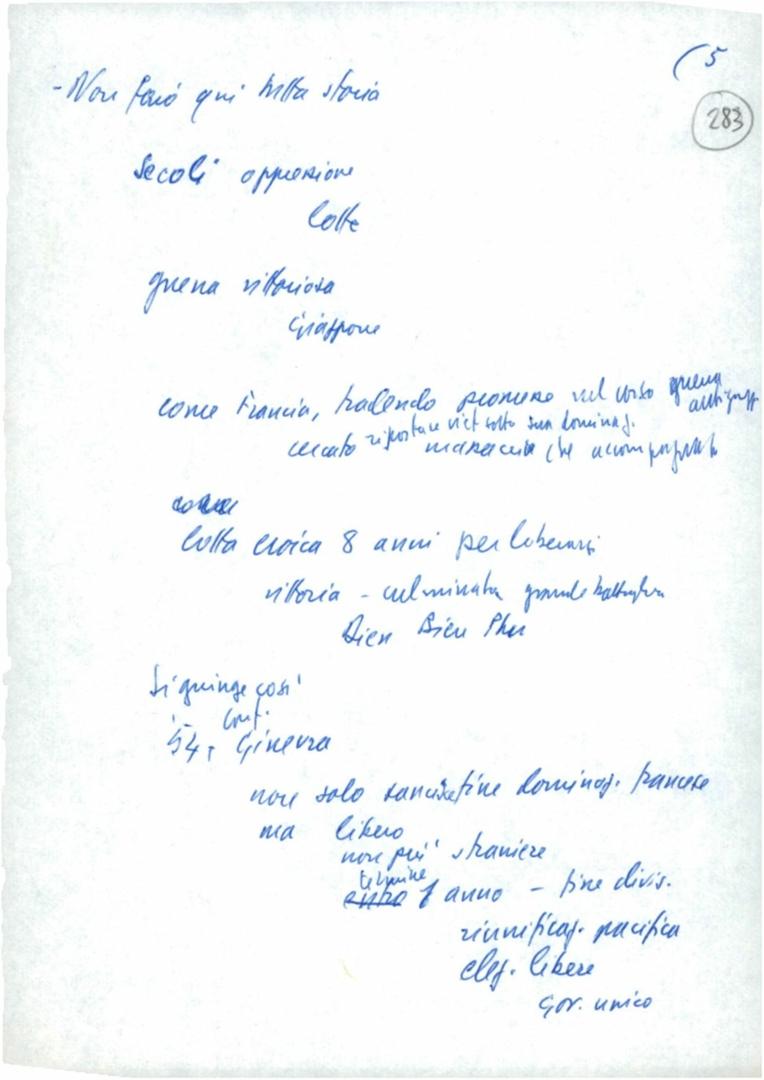 (5
283
- Non farò qui tutta storia
Secoli oppressione
lotte
guerra vittoriosa
Giappone
come Francia, tradendo promesse nel corso guerra
cercato riportare Viet sotto sua dominaz.
che
lotta eroica 8 anni per liberarsi
vittoria - culminata grande battaglia
Dien Bien Phu
Si giunge così
Conf.
'54, Ginevra
non solo sancisce fine dominaz. francese
ma libero
non più straniere
termine
entro 1 anno - fine divis.
riunificaz. pacifica
elez. libere
Gov. unico